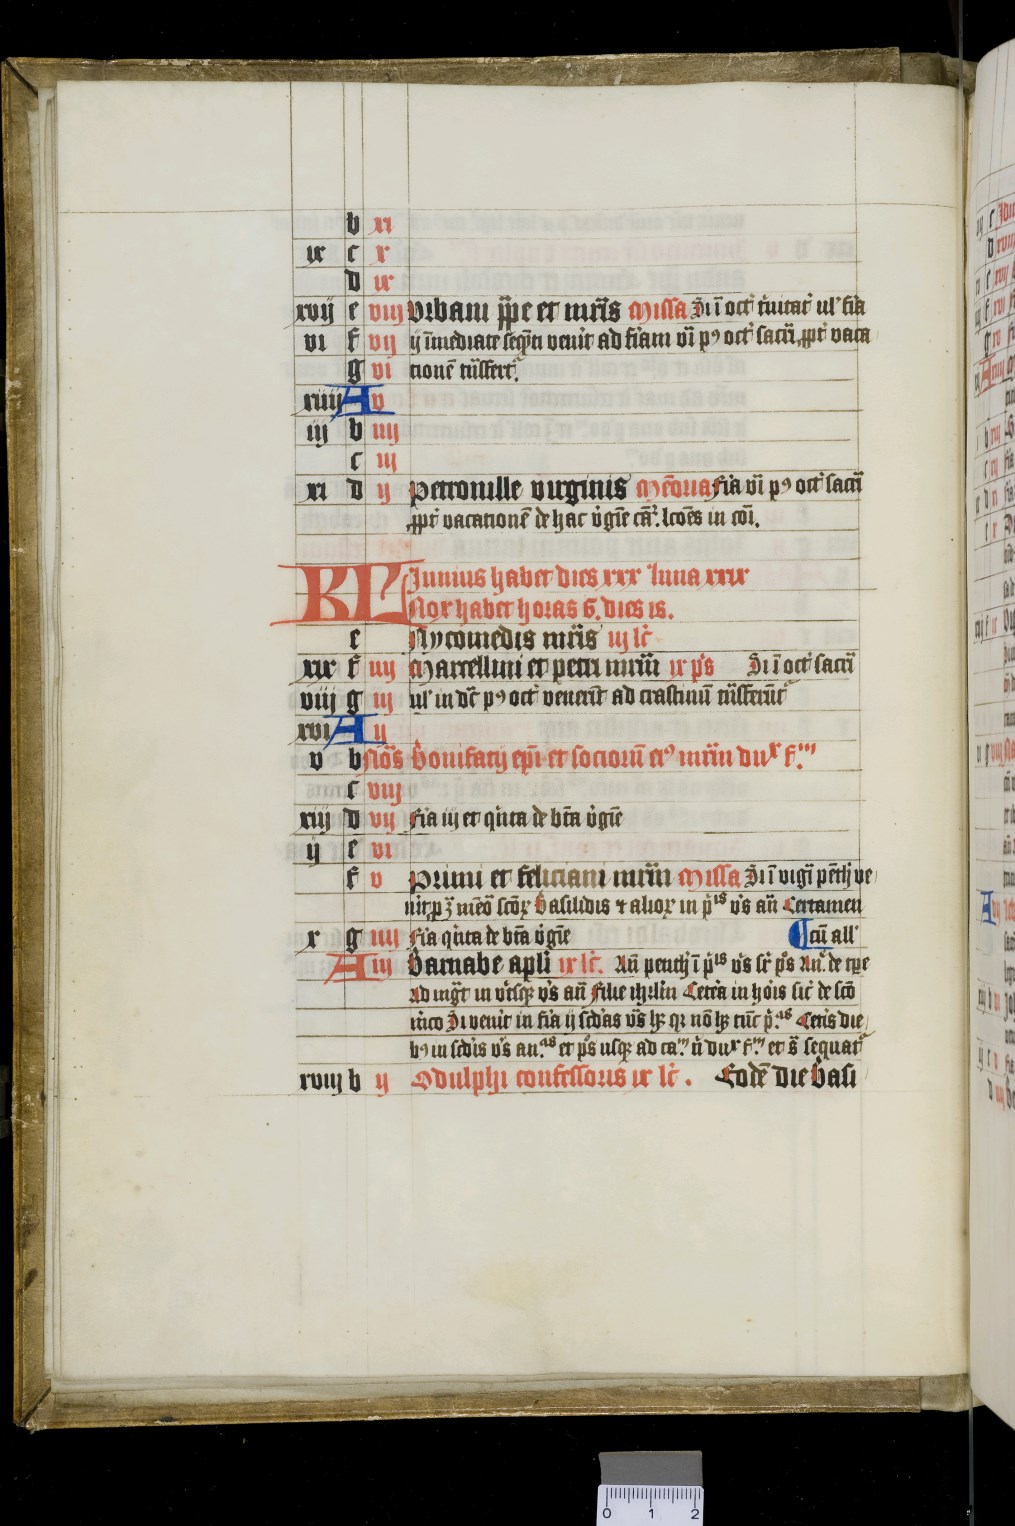 b xi
ix c x
d ix
xvij e viij Vrbani ꝑpe et mr̄is Missa Si ī oct̄ t̄nitat̄ ul' fīa
vi f vij ij īmediate seq̄nti ven̄it ad fīam vi pꝰ oct̄ sacr̄i ꝓpt̄ vaca
g vi tionē tn̄sfert᷑.
xiiij A v
iij b iiij
c iij
xi d ij Petronille virginis Mēoria Fīa vi pꝰ oct̄ sacr̄i
ꝓpt̄ vacationē de hac v̄gīe lc̄oēs in cōi.
KL Junius habet dies xxx luna xxix
Nox habet horas 6. dies 18.
e Nycomedis mr̄is iij lc̄
xix f iiij Marcellini et petri mr̄m ix ps̄ Si ī oct̄ sacr̄i
viij g iij ul' in dē pꝰ oct̄ venerīt ad crastinū tn̄sferūt᷑
xvi A ij
v b Nōs Bonifacij epī et sociorū eiꝰ mr̄m dux f.m
c viij
xiij d vij Fīa iij et qīnta de bt̄a v̄gīe
ij e vi
f v Primi et feliciani mr̄m Missa Si ī vigī pēth ve
nīt mēō scōꝝ Basilidis ⁊ alioꝝ in p̄is v̄s an̄ Certamen
x g iiij Fīa qīnta de bt̄a v̄gīe cū all'
A iij Barnabe apl̄i ix lc̄. An̄ penth ī p̄is v̄s st̄ ps̄ an̄ de tpe
Ad mgt̄ in vt̄sqꝫ v̄s an̄ Filie ihrl̄m Cetēa in hōis sic̄ de scō
m̄co Si ven̄it in fīa ij scd̄as v̄s hꝫ qꝛ nō hꝫ tūc p̄as Cet̄is die
bꝰ in scd̄is v̄s an.as et ps̄ usqꝫ ad ca.m n̄ dux f.m et s̄ sequat᷑
xviij b ij Odulphi confessoris ix lc̄. Eodē die Basi